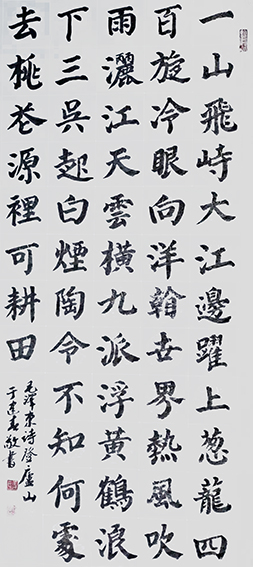 一山飛峙大江邊躍上葱龍四
百旋冷眼向洋看世界熱風吹
雨灑江天雲橫九派浮黃鶴浪
下三吳起白煙陶令不知何處
去桃花源裡可耕田
毛澤東詩登廬山
敬書